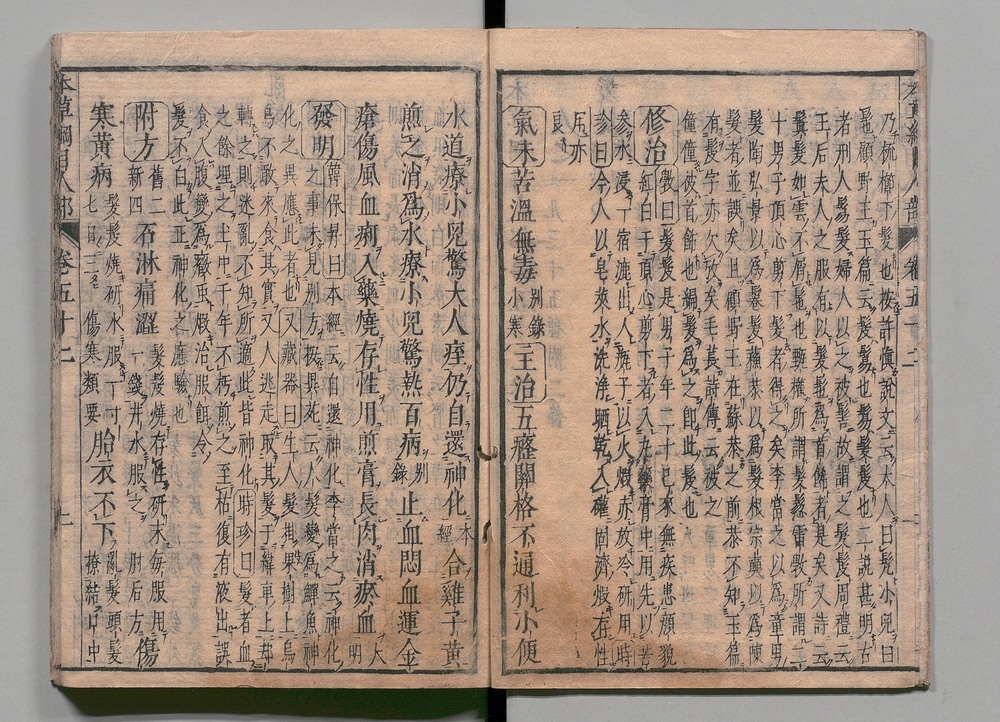 乃梳櫛下髮也按許愼說文云大人曰髡小兒曰
髢顧野王玉篇云髲鬄也鬄髲也二說甚明古
者刑人鬄髮婦人以之被髻故謂之髲髢周禮云
王后夫人之服有以髮鬄爲首飾者是矣又詩云
鬒髮如雲不屑髢也甄權所謂髮髲雷斅所謂二
十男子頂心剪下髮者得之矣李當之以爲童男
髮陶弘景以爲鬈髮蘇恭以爲髮根宗奭以爲陳
髮者並誤矣且顧野王在蘇恭之前恭不知玉篇
有髲字亦欠攷矣毛萇詩傳云被之
僮僮被首飾也編髮爲之即此髲也
修治 斅曰髮髲是男子年二十已來無疾患顏貌
紅白于頂心剪下者入丸藥膏中用先以苦
參水浸一宿漉出入瓶子以火煆赤放冷研用時
珍曰今人以皂莢水洗淨晒乾入罐固濟煆存性
用亦
良
氣味苦溫無毒 別錄小寒 主治五癃關格不通利小便
水道療小兒驚大人痓仍自還神化 本經 合雞子黃
煎之消爲水療小兒驚熱百病 別錄 止血悶血運金
瘡傷風血痢入藥燒存性用煎膏長肉消瘀血 大明
發明 韓保昇曰本經云自還神化李當之云神化
之事未見別方按異苑云人髮變爲鱓魚神
化之異應此者也又藏器曰生人髮掛果樹上烏
鳥不敢來食其實又人逃走取其髮于緯車上却
轉之則迷亂不知所適此皆神化時珍曰髮者血
之餘埋之土中千年不朽煎之至枯復有液出誤
食入腹變爲癥虫煆治服餌令
髮不白此正神化之應驗也
附方 舊二新四 石淋痛澀 髮髲燒存性研末每服用一錢井水服之 肘后方 傷
寒黃病 髮髲燒研水服一寸匕日三 傷寒類要 胎衣不下 亂髮頭髮撩結口中
本草綱目人部 卷五十二 二